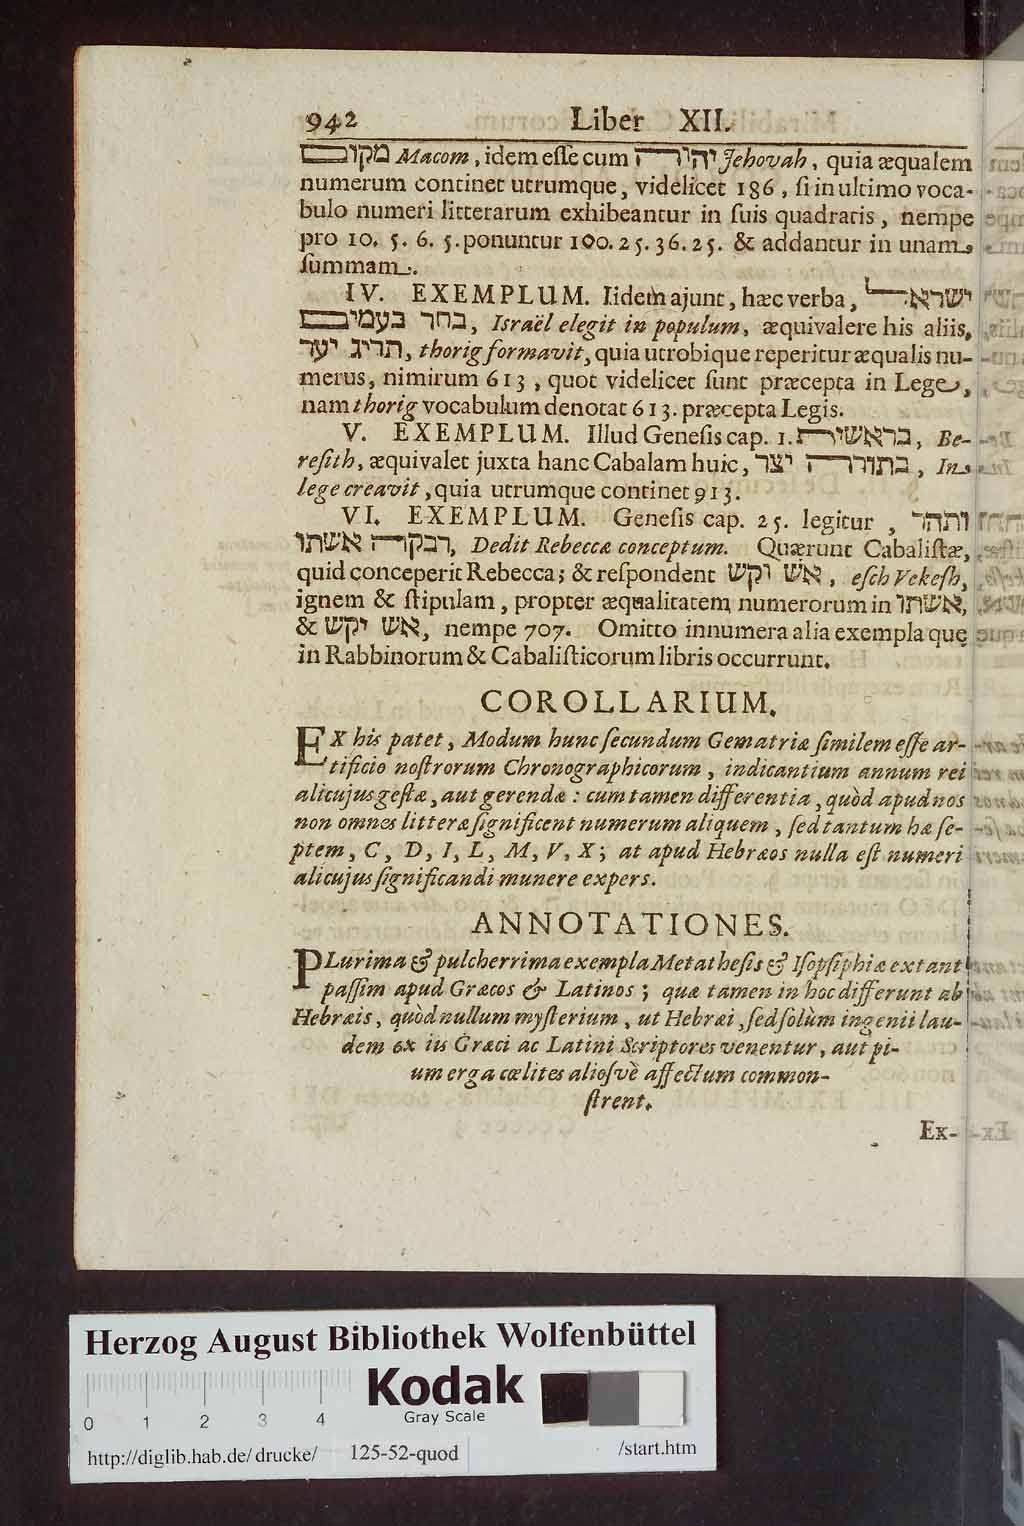 942 Liber XII.
מקום Macom, idem eſſe cum יהוה Jehovah, quia æqualem
numerum continet utrumque, videlicet 186, ſi in ultimo voca-
bulo numeri litterarum exhibeantur in ſuis quadratis, nempe
pro 10. 5. 6. 5. ponuntur 100. 25. 36. 25. & addantur in unam
ſummam.
IV. EXEMPLUM. Iidem ajunt, hæc verba, ישראל
בחר בעמים, Israël elegit in populum, æquivalere his aliis,
תריג יער, thorig formavit, quia utrobique reperitur æqualis nu-
merus, nimirum 613, quot videlicet ſunt præcepta in Lege,
nam thorig vocabulum denotat 613. præcepta Legis.
V. EXEMPLUM. Illud Geneſis cap. 1. בראשית, Be-
reſith, æquivalet juxta hanc Cabalam huic, בתורה יצר, In
lege creavit, quia utrumque continet 913.
VI. EXEMPLUM. Geneſis cap. 25. legitur, ותהר
רבקה אשתו, Dedit Rebecca conceptum. Quærunt Cabaliſtæ,
quid conceperit Rebecca; & reſpondent אש וקש, eſch Vekeſh,
ignem & ſtipulam, propter æqualitatem numerorum in אשתו,
& אש יקש, nempe 707. Omitto innumera alia exempla quę
in Rabbinorum & Cabaliſticorum libris occurrunt.
COROLLARIUM.
EX his patet, Modum hunc ſecundum Gematriæ ſimilem eſſe ar-
tificio noſtrorum Chronographicorum, indicantium annum rei
alicujus geſtæ, aut gerendæ: cum tamen differentia, quòd apud nos
non omnes litteræ ſignificent numerum aliquem, ſed tantum hæ ſe-
ptem, C, D, I, L, M, V, X; at apud Hebræos nulla eſt numeri
alicujus ſignificandi munere expers.
ANNOTATIONES.
PLurima & pulcherrima exempla Metatheſis & Iſopſiphiæ extant
paſſim apud Græcos & Latinos; quæ tamen in hoc differunt ab
Hebræis, quòd nullum myſterium, ut Hebræi, ſed ſolùm ingenii lau-
dem ex iis Græci ac Latini Scriptores venentur, aut pi-
um erga cœlites alioſvè affectum common-
ſtrent.
Ex-
Herzog August Bibliothek Wolfenbüttel
Kodak
Gray Scale
0 1 2 3 4
http://diglib.hab.de/drucke/ 125-52-quod /start.htm